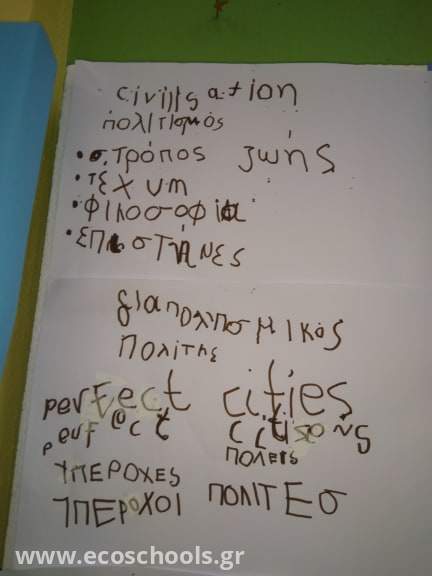 civilisation
πολιτισμός
• ο τρόπος ζωής
• τέχνη
• φιλοσοφία
• ΕΠΙστήμες
διαπολιτισμικός
πολίτης
perfect cities
perfect citisens
πολεις
ΥΠΕΡΟΧΕΣ
ΥΠΕΡΟΧΟΙ ΠΟΛΙΤΕσ
www.ecoschools.gr